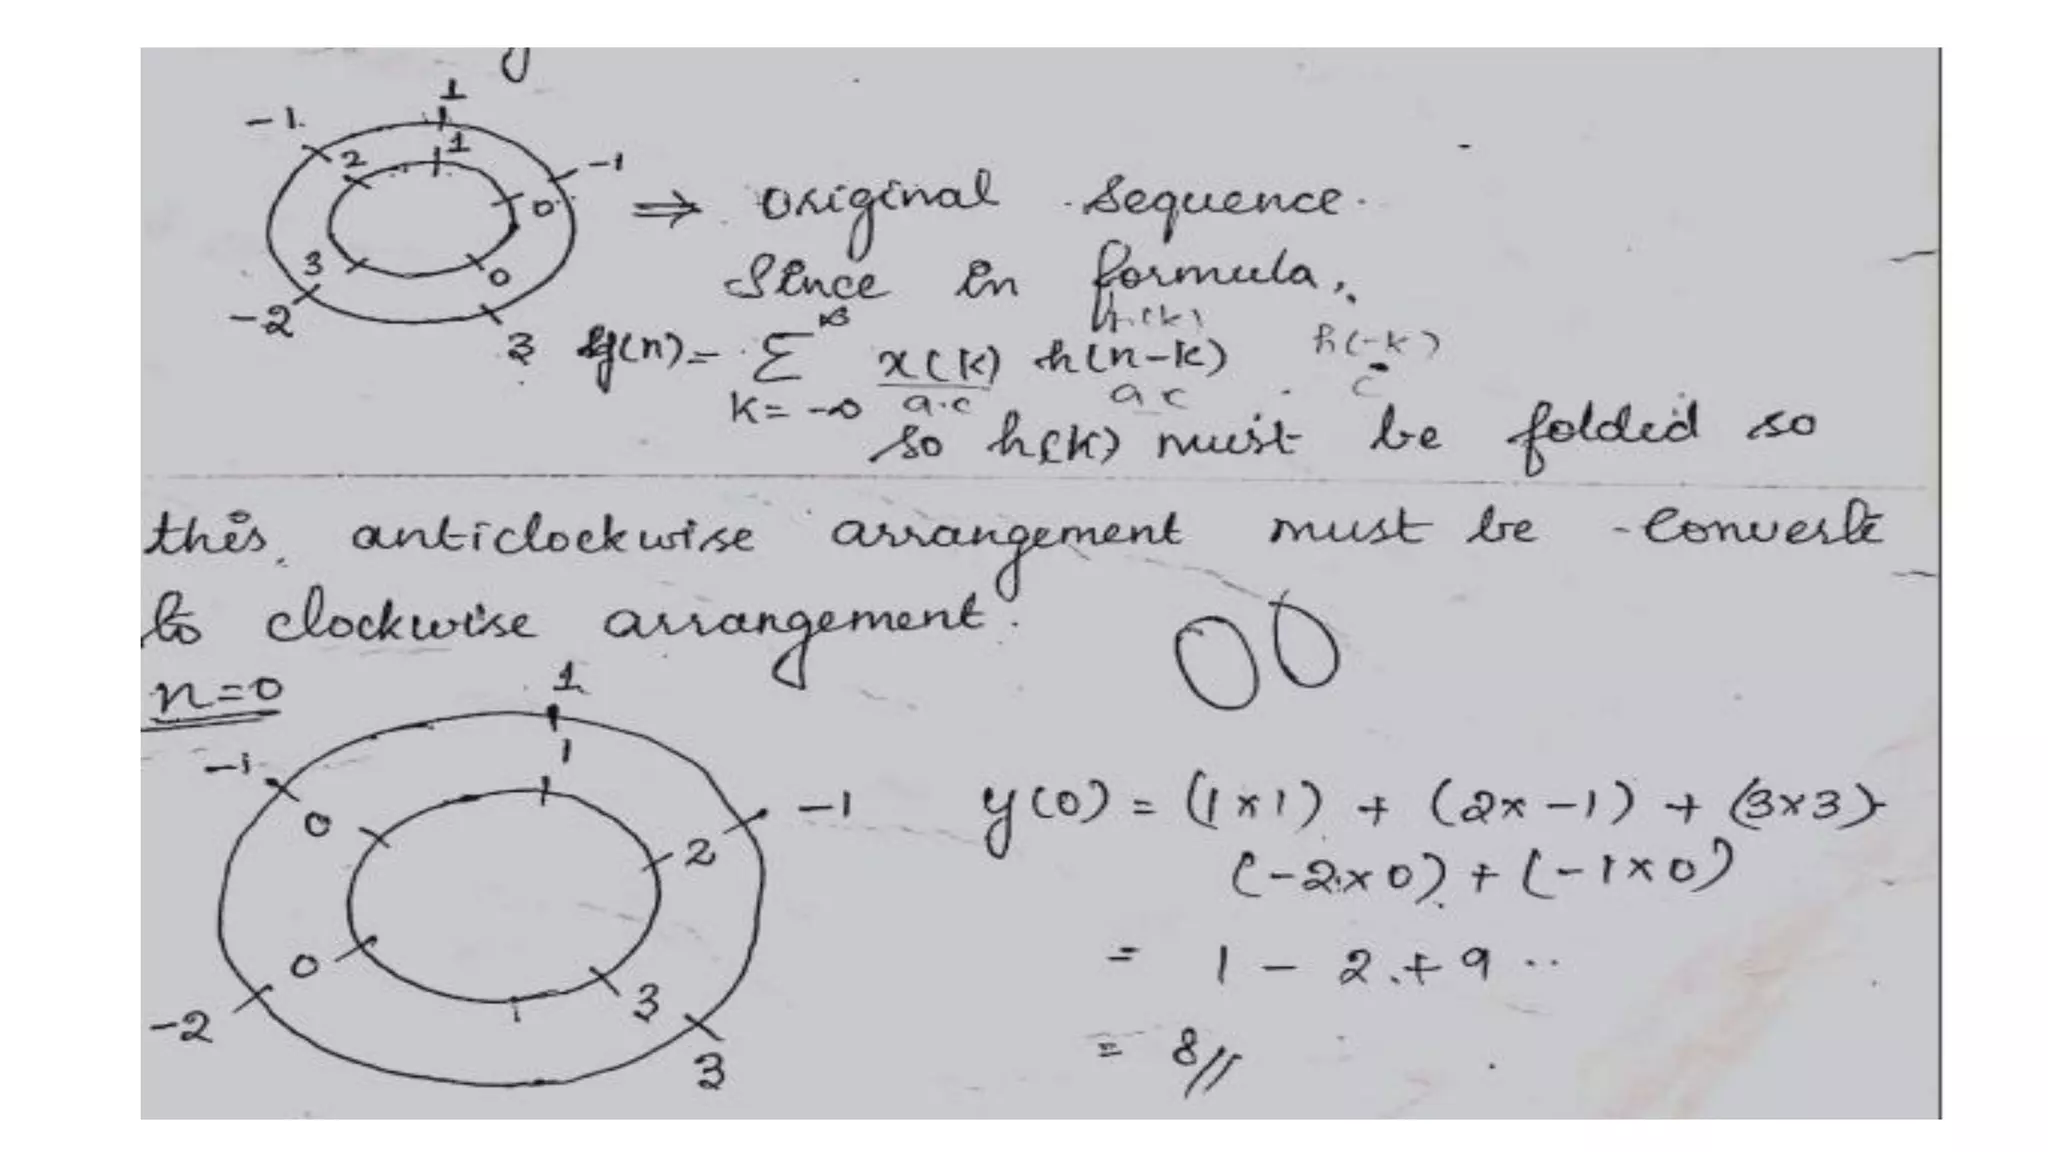 1
-1
1
2
-1
0
⇒ original sequence.
3
0
Since in formula,
-2
3
h(k)
y(n) = Σ x(k) h(n-k) h(-k)
∞
k = -∞ a.c a c c
so h(k) must be folded so
this anticlockwise arrangement must be converte
to clockwise arrangement.
n=0
1
-1
1
-1
0
2
y(0) = (1×1) + (2×-1) + (3×3)+
(-2×0) + (-1×0)
0
3
= 1 - 2 + 9
-2
3
= 8//